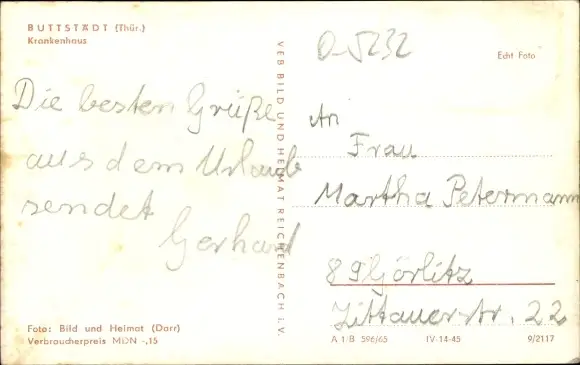 BUTTSTÄDT (Thür.)
Krankenhaus
Die besten Grüße
aus dem Urlaub
sendet
Gerhard
Foto: Bild und Heimat (Darr)
Verbraucherpreis MDN -,15
VEB BILD UND HEIMAT REICHENBACH i. V.
O-5232
Echt Foto
An
Frau
Martha Petermann
89 Görlitz
Zittauerstr. 22
A 1/B 596/65 IV-14-45 9/2117